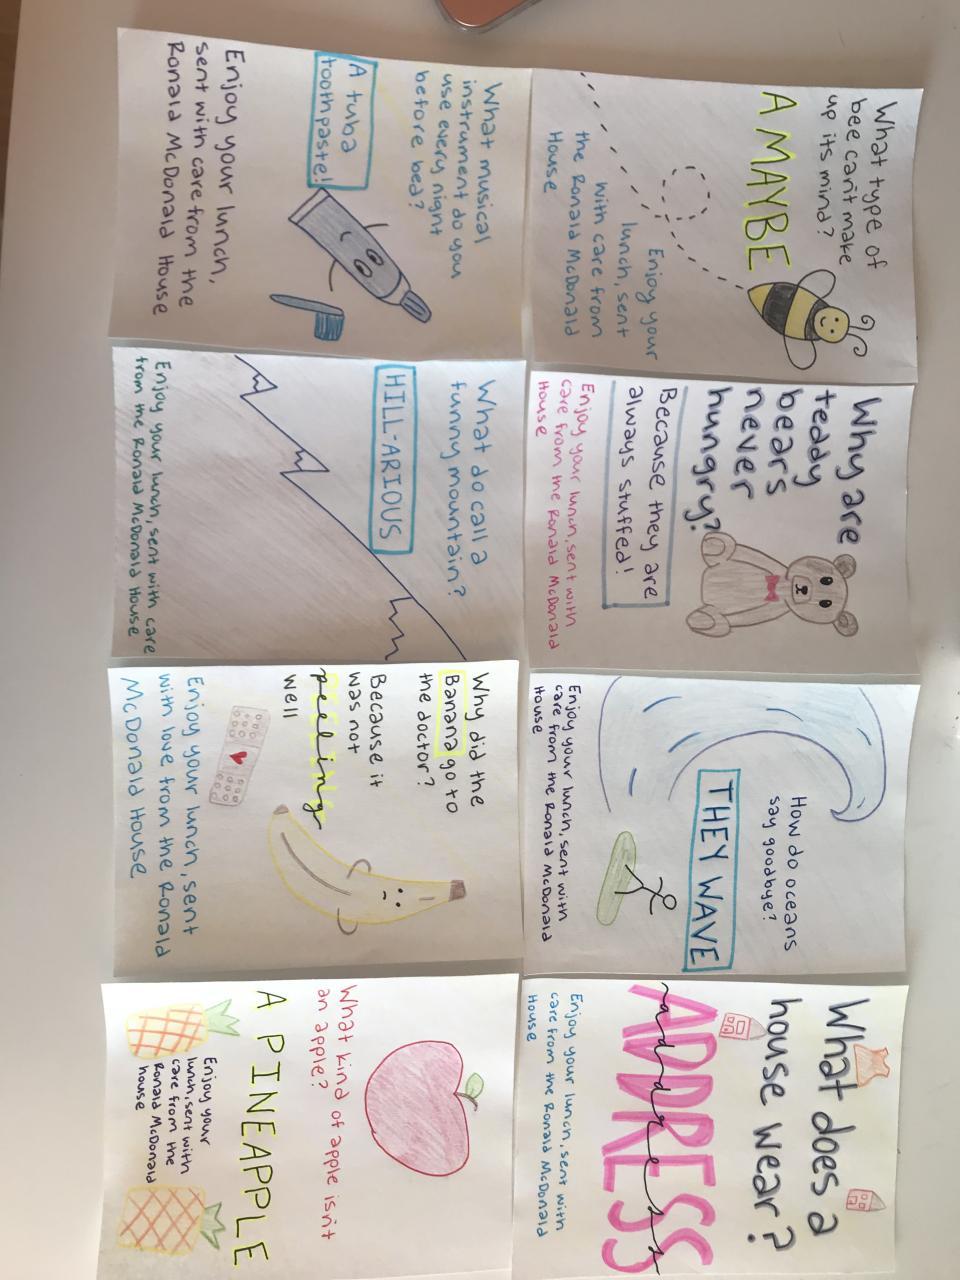 What type of
bee can't make
up its mind?
A MAYBE
Enjoy your
lunch, sent
with care from
the Ronald McDonald
House
Why are
teddy
bears
never
hungry?
Because they are
always stuffed!
Enjoy your lunch, sent with
care from the Ronald McDonald
House
How do oceans
say goodbye?
THEY WAVE
Enjoy your lunch, sent with
care from the Ronald McDonald
House
What does a
house wear?
ADDRESS
address
Enjoy your lunch, sent with
care from the Ronald McDonald
House
What musical
instrument do you
use every night
before bed?
A tuba
toothpaste!
Enjoy your lunch,
sent with care from the
Ronald McDonald House
What do call a
funny mountain?
HILL-ARIOUS
Enjoy your lunch, sent with care
from the Ronald McDonald House
Why did the
Banana go to
the doctor?
Because it
was not
peeling
well
Enjoy your lunch, sent
with love from the Ronald
McDonald House
What kind of apple isn't
an apple?
A PINEAPPLE
Enjoy your
lunch, sent with
care from the
Ronald McDonald
house